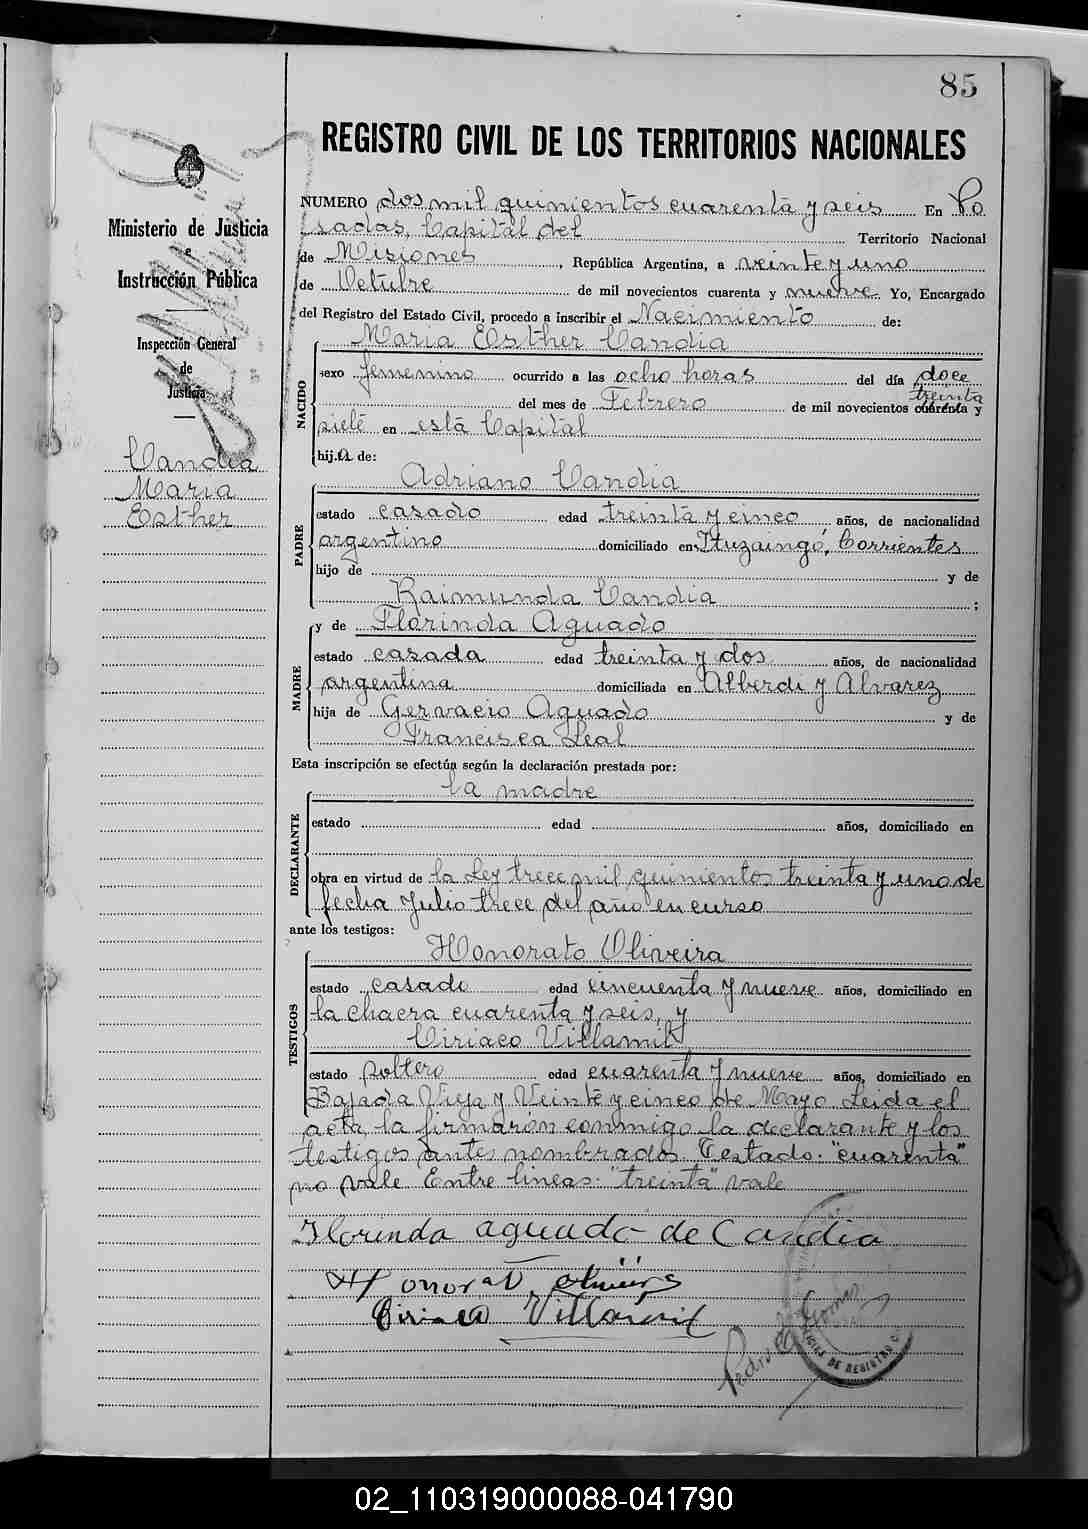 85
REGISTRO CIVIL DE LOS TERRITORIOS NACIONALES
Ministerio de Justicia
e
Instrucción Pública
Inspección General
de
Justicia
Candia
Maria
Esther
NUMERO dos mil quinientos cuarenta y seis En Po
sadas, Capital del Territorio Nacional
de Misiones, República Argentina, a veinte y uno
de Octubre de mil novecientos cuarenta y nueve. Yo, Encargado
del Registro del Estado Civil, procedo a inscribir el Nacimiento de:
Maria Esther Candia
NACIDO
sexo femenino ocurrido a las ocho horas del día doce
treinta
del mes de Febrero de mil novecientos cuarenta y
siete en esta Capital
hij.a de:
Adriano Candia
PADRE
estado casado edad treinta y cinco años, de nacionalidad
argentino domiciliado en Ituzaingó, Corrientes
hijo de y de
Raimunda Candia ;
y de Florinda Aguado
MADRE
estado casada edad treinta y dos años, de nacionalidad
argentina domiciliada en Alberdi y Alvarez
hija de Gervacio Aguado y de
Francisca Leal
Esta inscripción se efectúa según la declaración prestada por:
la madre
DECLARANTE
estado edad años, domiciliado en
obra en virtud de la Ley trece mil quinientos treinta y uno de
fecha Julio trece del año en curso
ante los testigos:
Honorato Oliveira
TESTIGOS
estado casado edad cincuenta y nueve años, domiciliado en
la chacra cuarenta y seis, y
Ciriaco Villamil
estado soltero edad cuarenta y nueve años, domiciliado en
Bajada Vieja y Veinte y cinco de Mayo. Leida el
acta, la firmaron conmigo la declarante y los
testigos antes nombrados. Testado: "cuarenta"
no vale. Entre lineas: "treinta" vale
Florinda aguado de Candia
Honorato
Ciriaco Villamil
Pedro
DE REGISTRO
02_110319000088-041790